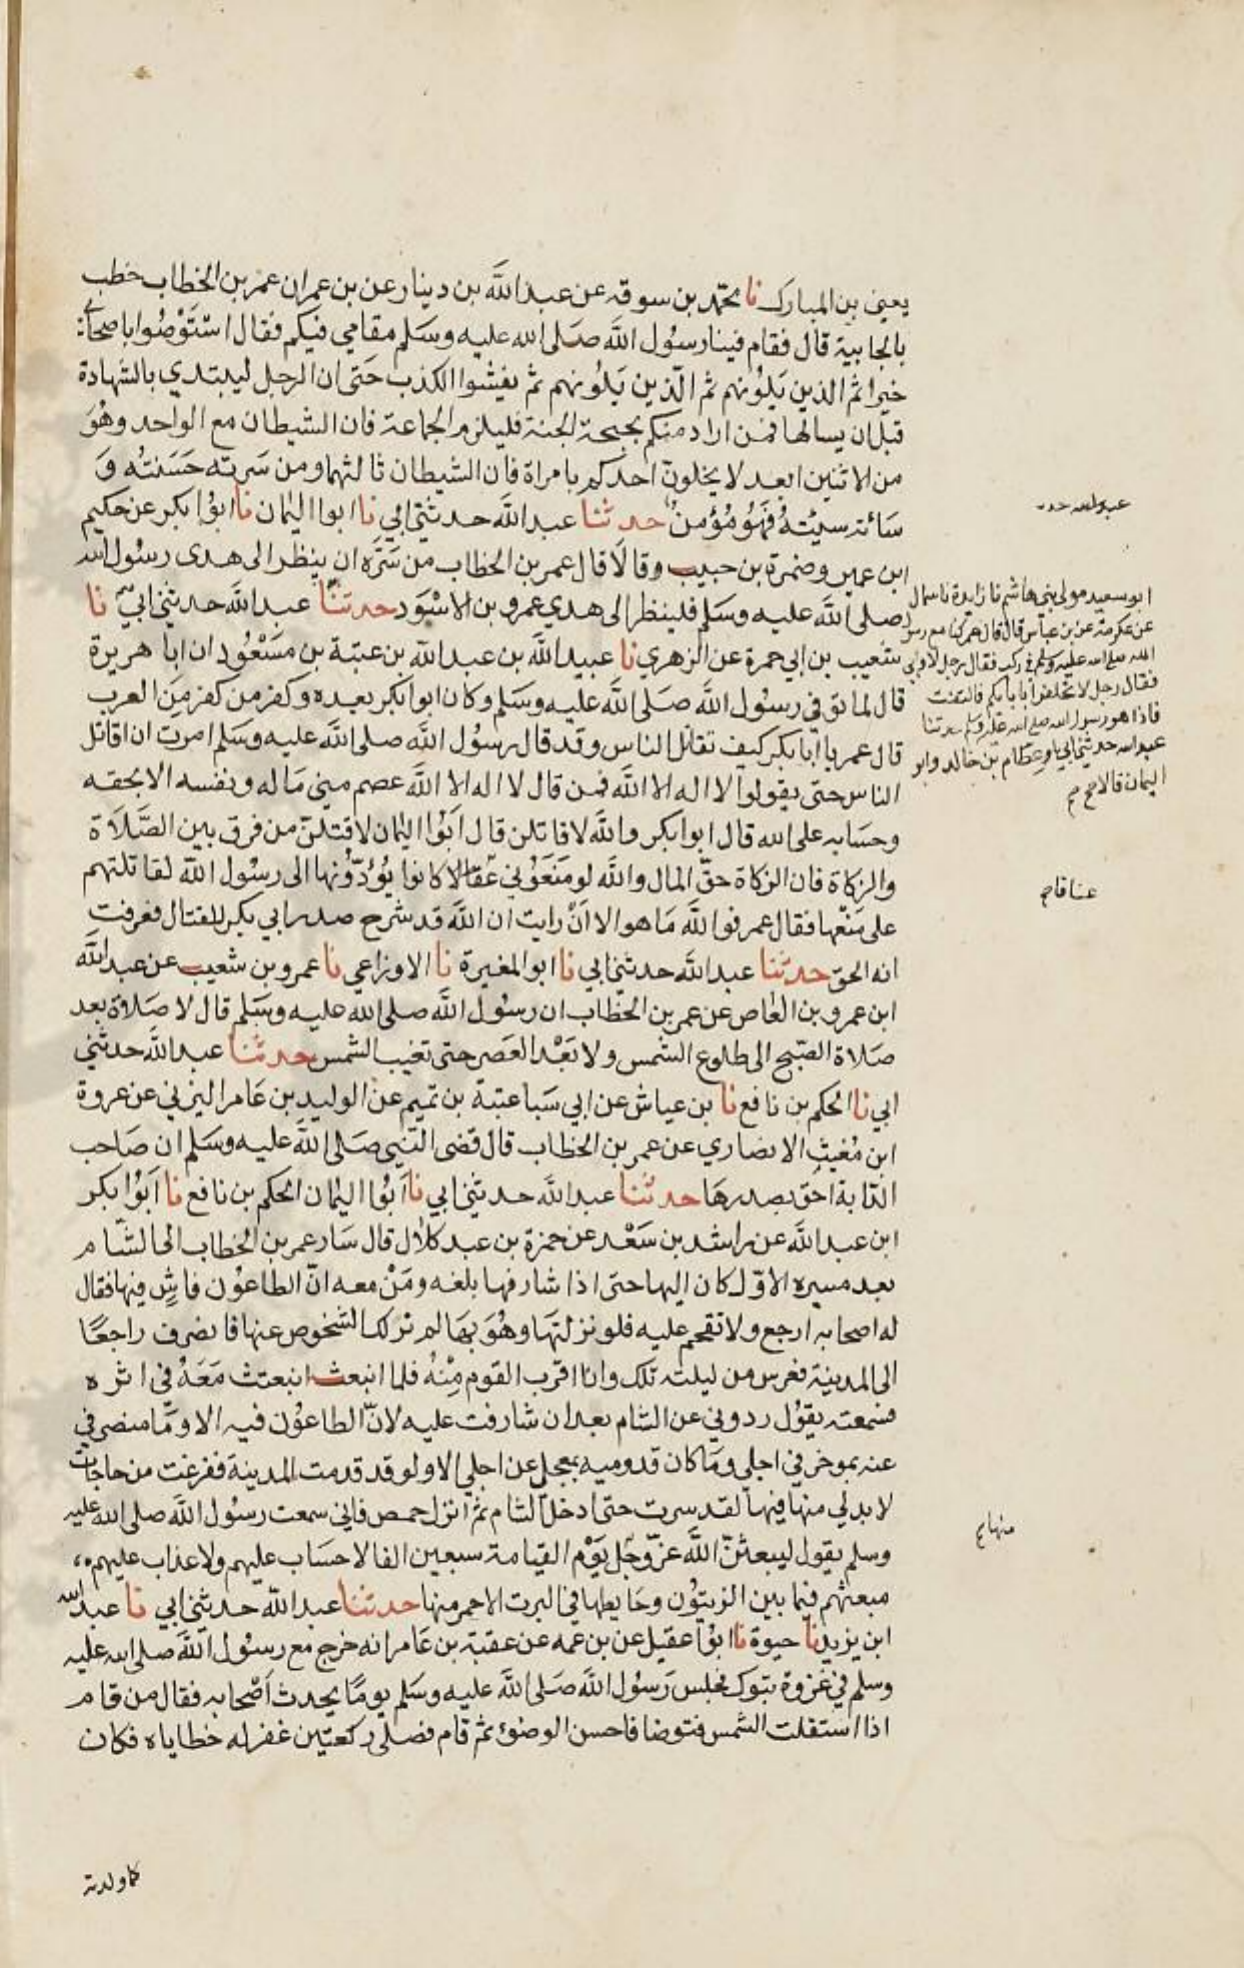 يعني بن المبارك نا محمد بن سوقه عن عبد الله بن دينار عن بن عمر ان عمر بن الخطاب خطب
بالجابية قال فقام فينا رسول الله صلى الله عليه وسلم مقامي فيكم فقال استوصوا باصحابي
خيرا ثم الذين يلونهم ثم الذين يلونهم ثم يفشوا الكذب حتى ان الرجل ليبتدي بالشهادة
قبل ان يسالها فمن اراد منكم بحبحة الجنة فليلزم الجماعة فان الشيطان مع الواحد وهو
من الاثنين ابعد لا يخلون احدكم بامراة فان الشيطان ثالثهما ومن سرته حسنته و
سائته سيئته فهو مؤمن حدثنا عبد الله حدثني ابي نا ابوا اليمان نا ابوا بكر عن حكيم
ابن عمير وضمرة بن حبيب وقالا قال عمر بن الخطاب من سره ان ينظر الى هدى رسول الله
صلى الله عليه وسلم فلينظر الى هدي عمرو بن الاسود حدثنا عبد الله حدثني ابي نا
شعيب بن ابي حمزة عن الزهري نا عبيد الله بن عبد الله بن عتبة بن مسعود ان ابا هريرة
قال لما توفي رسول الله صلى الله عليه وسلم وكان ابوا بكر بعده وكفر من كفر من العرب
قال عمر يا ابا بكر كيف تقاتل الناس وقد قال رسول الله صلى الله عليه وسلم امرت ان اقاتل
الناس حتى يقولوا لا اله الا الله فمن قال لا اله الا الله عصم مني ماله ونفسه الا بحقه
وحسابه على الله قال ابوا بكر والله لاقاتلن قال ابوا اليمان لاقتلن من فرق بين الصلاة
والزكاة فان الزكاة حق المال والله لو منعوني عقالا كانوا يؤدونها الى رسول الله لقاتلتهم
على منعها فقال عمر فوالله ما هو الا ان رايت ان الله قد شرح صدر ابي بكر للقتال فعرفت
انه الحق حدثنا عبد الله حدثني ابي نا ابوا المغيرة نا الاوزاعي نا عمرو بن شعيب عن عبد الله
ابن عمرو بن العاص عن عمر بن الخطاب ان رسول الله صلى الله عليه وسلم قال لا صلاة بعد
صلاة الصبح الى طلوع الشمس ولا بعد العصر حتى تغيب الشمس حدثنا عبد الله حدثني
ابي نا الحكم بن نافع نا بن عياش عن ابي سبا عتبة بن تميم عن الوليد بن عامر اليزني عن عروة
ابن مغيث الانصاري عن عمر بن الخطاب قال قضى النبي صلى الله عليه وسلم ان صاحب
الدابة احق بصدرها حدثنا عبد الله حدثني ابي نا ابوا اليمان الحكم بن نافع نا ابوا بكر
ابن عبد الله عن راشد بن سعد عن حمزة بن عبد كلال قال سار عمر بن الخطاب الى الشام
بعد مسيره الاول كان اليها حتى اذا شارفها بلغه ومن معه ان الطاعون فاش فيها فقال
له اصحابه ارجع ولا تقحم عليه فلو نزلتها وهو بها لم نر لك الشخوص عنها فانصرف راجعا
الى المدينة فعرس من ليلته تلك وانا اقرب القوم منه فلما انبعث انبعثت معه في اثره
فسمعته يقول ردوني عن الشام بعد ان شارفت عليه لان الطاعون فيه الا وما منصرفي
عنه بموخر في اجلي وما كان قدوميه بمعجل عن اجلي الا ولو قد قدمت المدينة ففرغت من حاجات
لا بد لي منها فيها لقد سرت حتى ادخل الشام ثم انزل حمص فاني سمعت رسول الله صلى الله عليه
وسلم يقول ليبعثن الله عز وجل يوم القيامة سبعين الفا لا حساب عليهم ولا عذاب عليهم
مبعثهم فيما بين الزيتون وحايطها في البرث الاحمر منها حدثنا عبد الله حدثني ابي نا عبد الله
ابن يزيد نا حيوة نا ابوا عقيل عن بن عمه عن عقبة بن عامر انه خرج مع رسول الله صلى الله عليه
وسلم في غزوة تبوك فجلس رسول الله صلى الله عليه وسلم يوما يحدث اصحابه فقال من قام
اذا استقلت الشمس فتوضا فاحسن الوضوء ثم قام فصلى ركعتين غفر له خطاياه فكان
ابو سعيد مولى بني هاشم نا زايدة نا سماك
عن عكرمة عن بن عباس قال قال عمر كنا مع رسول
الله صلى الله عليه وسلم في ركب فقال رجل لا وابي
فقال رجل لا تحلفوا بابايكم فالتفت
فاذا هو رسول الله صلى الله عليه وسلم حدثنا
عبد الله حدثني ابي نا عصام بن خالد وابو
اليمان قالا صح
عناقا صح
منها صح
كما ولدته